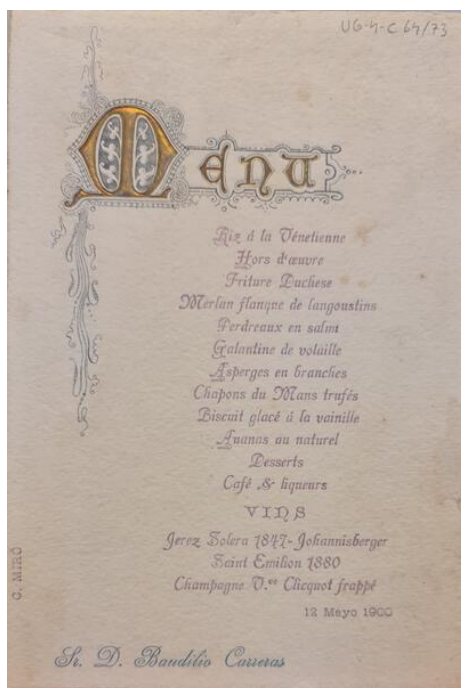 UG-4-C 64/73
Menu
Riz á la Vénetienne
Hors d'œuvre
Friture Duchese
Merlan flanqne de langoustins
Perdreaux en salmi
Galantine de volaille
Asperges en branches
Chapons du Mans trufés
Biscuit glacé á la vainille
Ananas au naturel
Desserts
Café & liqueurs
VINS
Jerez Solera 1847-Johannisberger
Saint Emilion 1880
Champagne V.ce Clicquot frappé
12 Mayo 1900
G. MIRÓ
Sr. D. Baudilio Carreras